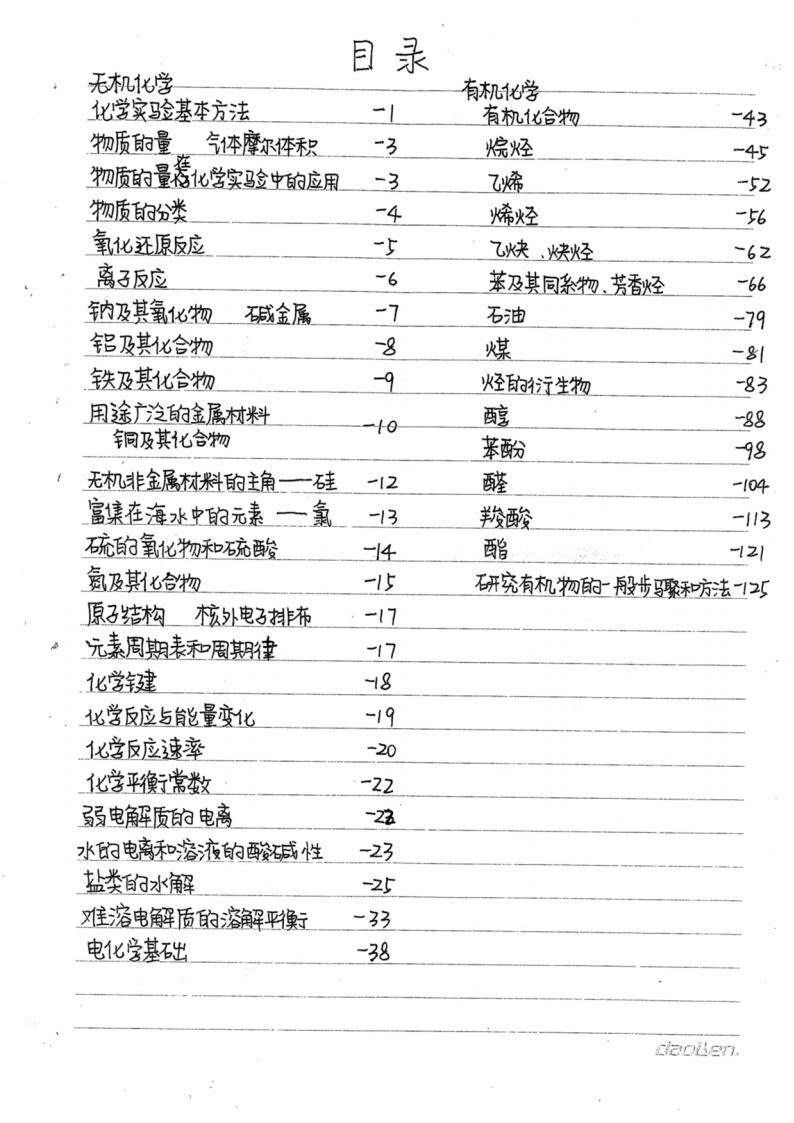 目录
无机化学
化学实验基本方法 -1
物质的量 气体摩尔体积 -3
物质的量在化学实验中的应用 -3
物质的分类 -4
氧化还原反应 -5
离子反应 -6
钠及其氧化物 碱金属 -7
铝及其化合物 -8
铁及其化合物 -9
用途广泛的金属材料
铜及其化合物 -10
无机非金属材料的主角——硅 -12
富集在海水中的元素——氯 -13
硫的氧化物和硫酸 -14
氮及其化合物 -15
原子结构 核外电子排布 -17
元素周期表和周期律 -17
化学键 -18
化学反应与能量变化 -19
化学反应速率 -20
化学平衡常数 -22
弱电解质的电离 -22
水的电离和溶液的酸碱性 -23
盐类的水解 -25
难溶电解质的溶解平衡 -33
电化学基础 -38
有机化学
有机化合物 -43
烷烃 -45
乙烯 -52
烯烃 -56
乙炔、炔烃 -62
苯及其同系物、芳香烃 -66
石油 -79
煤 -81
烃的衍生物 -83
醇 -88
苯酚 -98
醛 -104
羧酸 -113
酯 -121
研究有机物的一般步骤和方法 -125
daoBen.